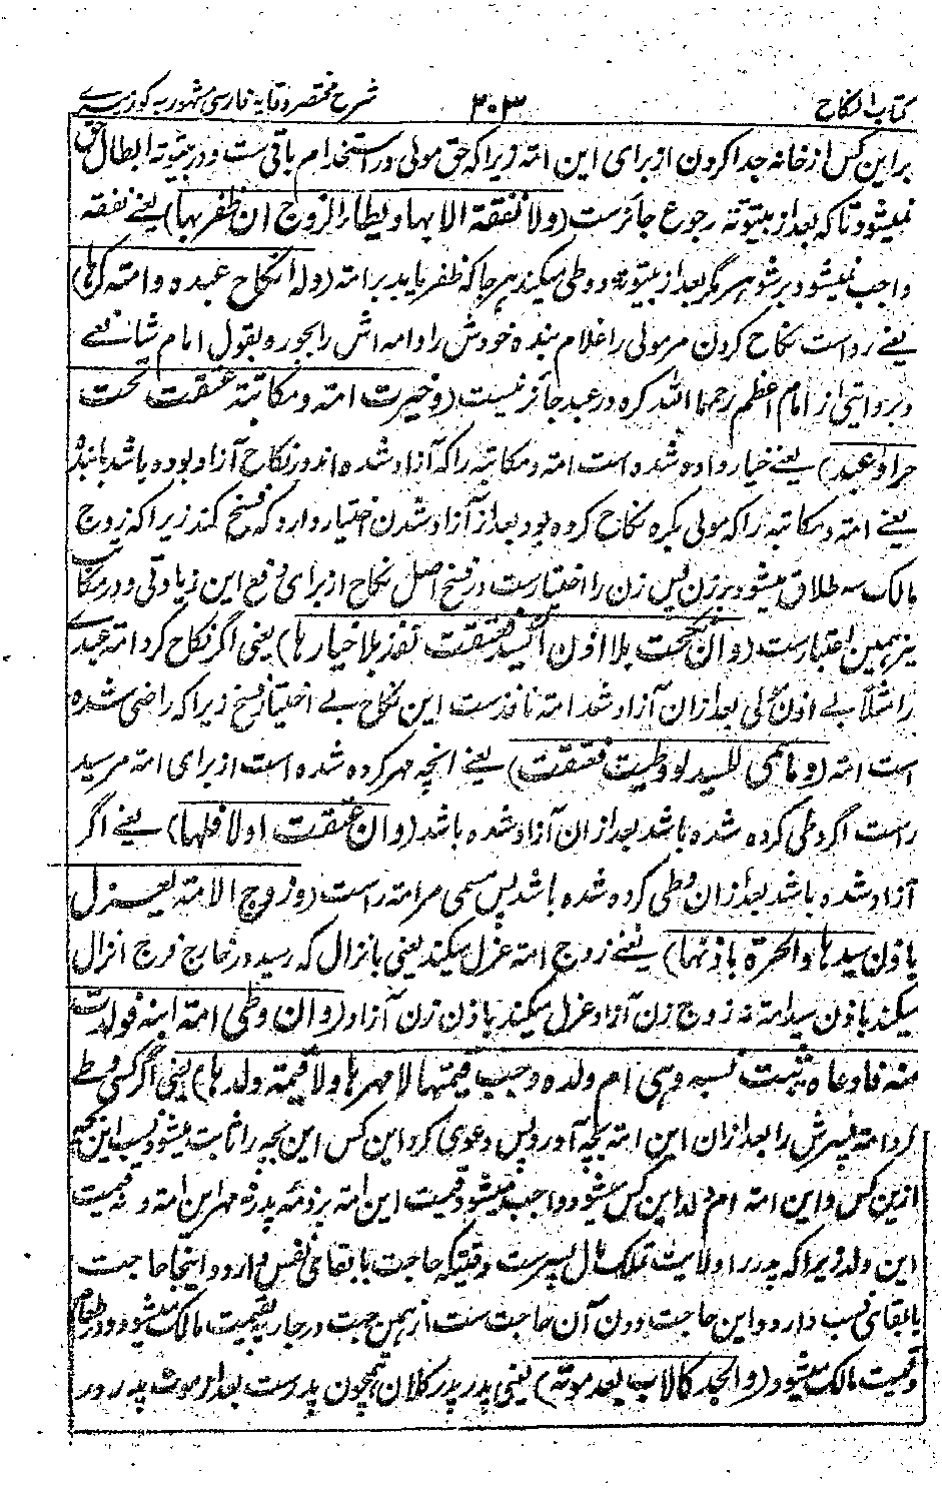 کتاب النکاح ۳۰۳ شرح مختصر وقایه فارسی مشهور به کوز بیرے
بر این کس از خانه جدا کردن از برای این امته زیراکه حق مولی در استخدام باقی ست و در بیتوته ابطال حق
نمیشود تا که بعد از بیتوته رجوع جائز ست (ولا نفقة الا بها ویطاء الزوج ان ظفر بها) یعنے نفقه
واجب نمیشود بر شوهر مگر بعد از بیتوته و وطی میکند هر جا که ظفر یابد بر امته (وله انکاح عبده وامته کرها)
یعنے رواست نکاح کردن مر مولی را غلام بنده خودش را و امه اش را بجور و بقول امام شافعے
و بروایتی از امام اعظم رحمهما الله کره در عبد جائز نیست (وخیرت امته ومکاتبة عتقت تحت
حر او عبد) یعنے خیار داده شده است امته و مکاتبه را که آزاد شده اند در نکاح آزاد بوده باشد یا بنده
یعنے امته و مکاتبه را که مولی بکره نکاح کرده بود بعد از آزاد شدن اختیار دارد که فسخ کند زیرا که زوج
مالک سه طلاق میشود بر زن پس زن را اختیار ست در فسخ اصل نکاح از برای دفع این زیادتی و در مکاتب
نیز همین اعتبار ست (وان نکحت بلا اذن السید فعتقت نفذ بلا خیار ها) یعنی اگر نکاح کرد امته عبدے
را مثلا بے اذن مولی بعد از ان آزاد شد امته نافذ ست این نکاح بے اختیار فسخ زیراکه راضی شده
است امته (وما سمی للسید لو وطیت فعتقت) یعنے انچه مهر کرده شده است از برای امته مر سید
راست اگر وطی کرده شده باشد بعد از ان آزاد شده باشد (وان عتقت اولا فلها) یعنے اگر
آزاد شده باشد بعد از ان وطی کرده شده باشد پس مسمی مر امته راست (وزوج الامته یعزل
باذن سیدها والحرة باذنها) یعنے زوج امته عزل میکند یعنی با نزال که رسید در خارج فرج انزال
میکند باذن سید امته نه زوج زن آزاد عزل میکند باذن زن آزاد (وان وطی امته ابنه فولدت
منه فادعاه ثبت نسبه وهی ام ولده وجب قیمتها لا مهرها ولا قیمة ولدها) یعنی اگر کسی وطے
کرد امته پسرش را بعد از ان این امته بچه آورد پس دعوی کرد این کس این بچه را ثابت میشود نسب این بچه
ازین کس و این امته ام ولد این کس میشود و واجب میشود قیمت این امته بر ذمه پدر نه مهر این امته و نه قیمت
این ولد زیراکه پدر را ولایت تملک مال پسر ست وقتیکه حاجت بابقای نفس دارد و اینجا حاجت
بابقای نسب دارد و این حاجت دون آن حاجت ست از همین جهت در جاریه بقیمت مالک میشود و در طعام
قیمت مالک میشود (والجد کالاب بعد موته) یعنی پدر پدر کلان همچون پدر ست بعد از موت پدر در